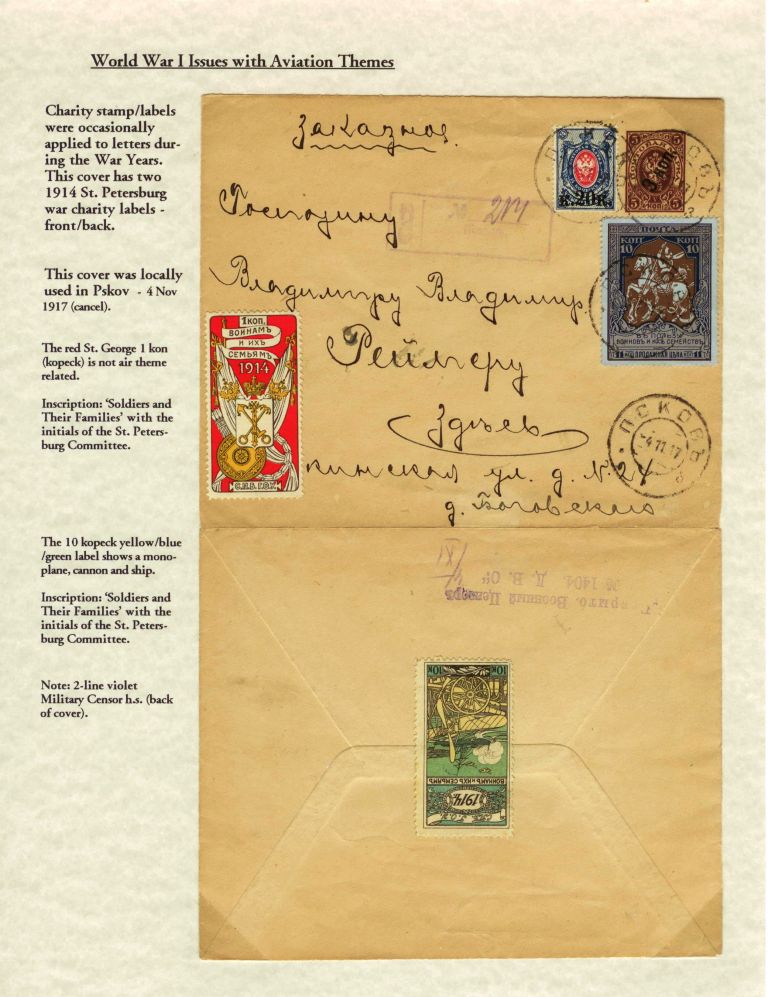 World War I Issues with Aviation Themes
Charity stamp/labels
were occasionally
applied to letters dur-
ing the War Years.
This cover has two
1914 St. Petersburg
war charity labels -
front/back.
This cover was locally
used in Pskov - 4 Nov
1917 (cancel).
The red St. George 1 kon
(kopeck) is not air theme
related.
Inscription: ‘Soldiers and
Their Families’ with the
initials of the St. Peters-
burg Committee.
The 10 kopeck yellow/blue
/green label shows a mono-
plane, cannon and ship.
Inscription: ‘Soldiers and
Their Families’ with the
initials of the St. Peters-
burg Committee.
Note: 2-line violet
Military Censor h.s. (back
of cover).
Заказное.
Господину
Владимiру Владимир.
Реймеру
Здѣсь
кинская ул. д. N. 24
д.
к. 20 к.
5 5
ПОЧТА
КОП КОП
10 10
ВЪ ПОЛЬЗУ
ВОИНОВЪ И ИХЪ СЕМЕЙСТВЪ
11 ПРОДАЖНАЯ ЦѢНА 11
№
ПСКОВЪ
4 11 17
1 КОП.
ВОИНАМЪ
И ИХЪ
СЕМЬЯМЪ
1914
Военный Цензоръ
№ 1404. Д. В. О.
1914
ВОИНАМЪ И ИХЪ СЕМЬЯМЪ
10 К 10 К